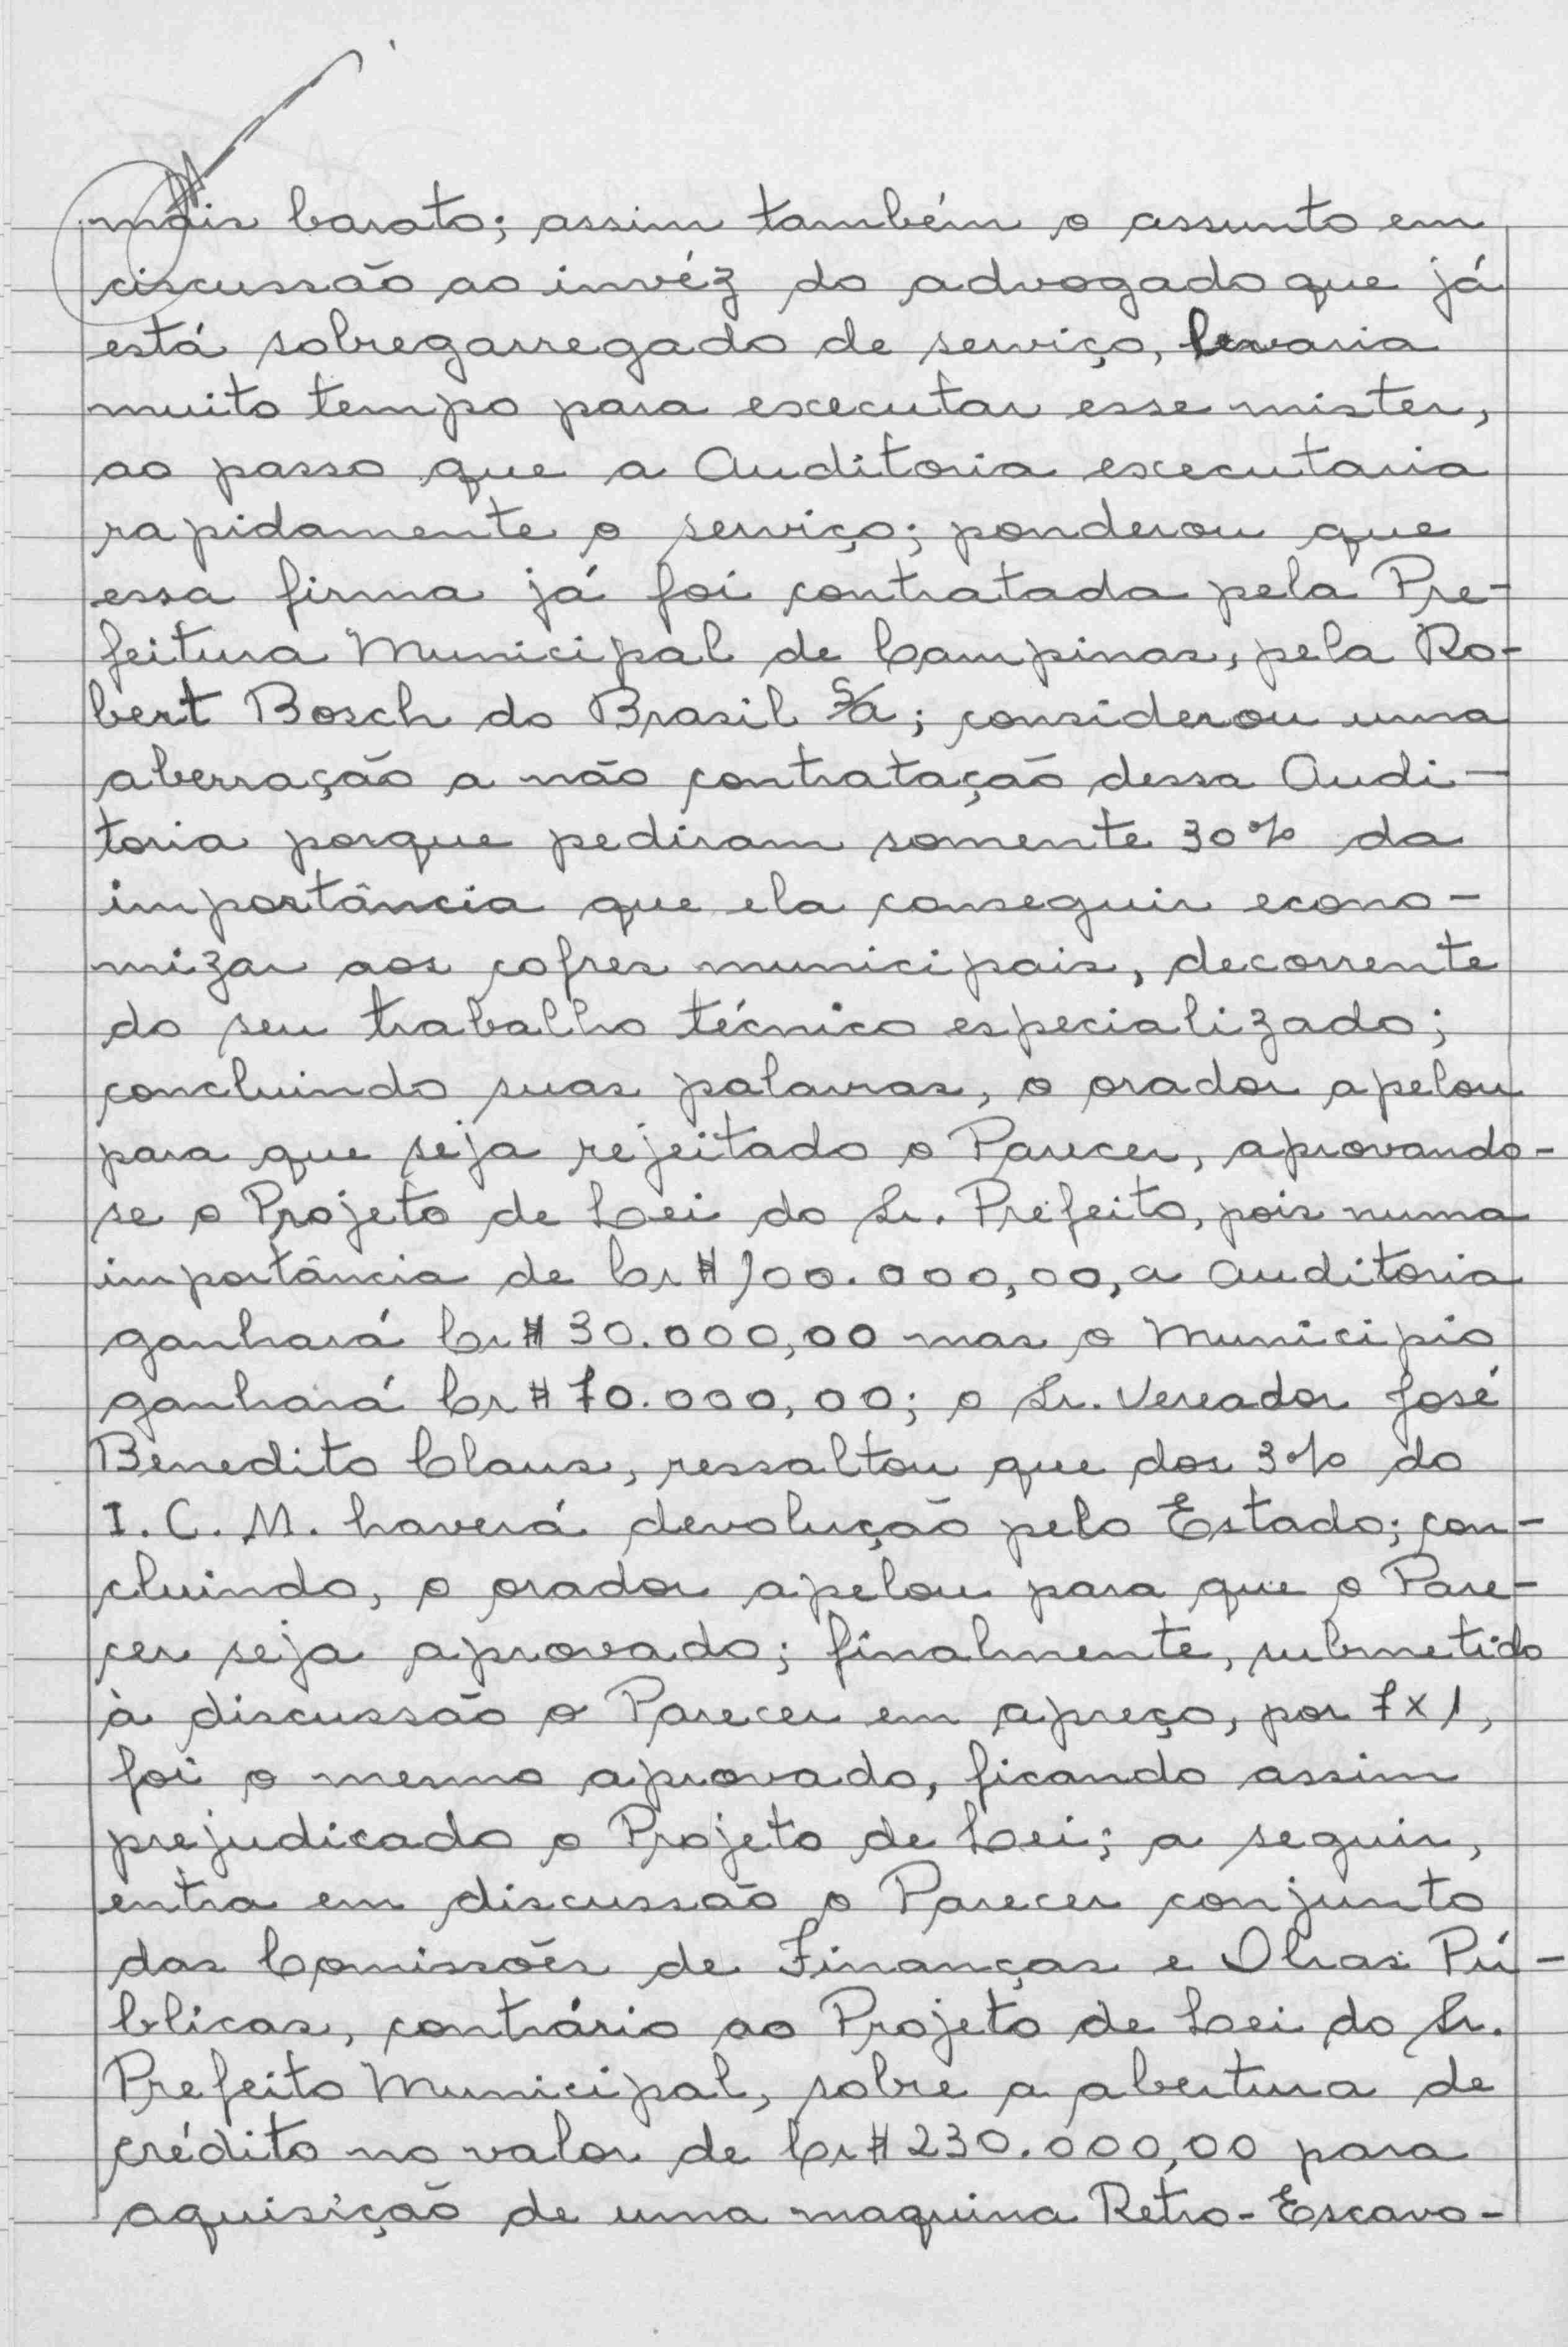 mais barato; assim também o assunto em
ciscussão ao invéz do advogado que já
está sobregarregado de serviço, levaria
muito tempo para executar esse mister,
ao passo que a Auditoria executaria
rapidamente o serviço; ponderou que
essa firma já foi contratada pela Pre-
feitura Municipal de Campinas, pela Ro-
bert Bosch do Brasil S/A; considerou uma
aberração a não contratação dessa Audi-
toria porque pediram somente 30% da
importância que ela conseguir econo-
mizar aos cofres municipais, decorrente
do seu trabalho técnico especializado;
concluindo suas palavras, o orador apelou
para que seja rejeitado o Parecer, aprovando-
se o Projeto de Lei do Sr. Prefeito, pois numa
importância de Cr$ 100.000,00, a Auditoria
ganhará Cr$ 30.000,00 mas o Municipio
ganhará Cr$ 70.000,00; o Sr. Vereador José
Benedito Claus, ressaltou que dos 3% do
I. C. M. haverá devolução pelo Estado; con-
cluindo, o orador apelou para que o Pare-
cer seja aprovado; finalmente, submetido
à discussão o Parecer em apreço, por 7x1,
foi o mesmo aprovado, ficando assim
prejudicado o Projeto de Lei; a seguir,
entra em discussão o Parecer conjunto
das Comissões de Finanças e Obras Pú-
blicas, contrário ao Projeto de Lei do Sr.
Prefeito Municipal, sobre a abertura de
crédito no valor de Cr$ 230.000,00 para
aquisição de uma maquina Retro-Escava-